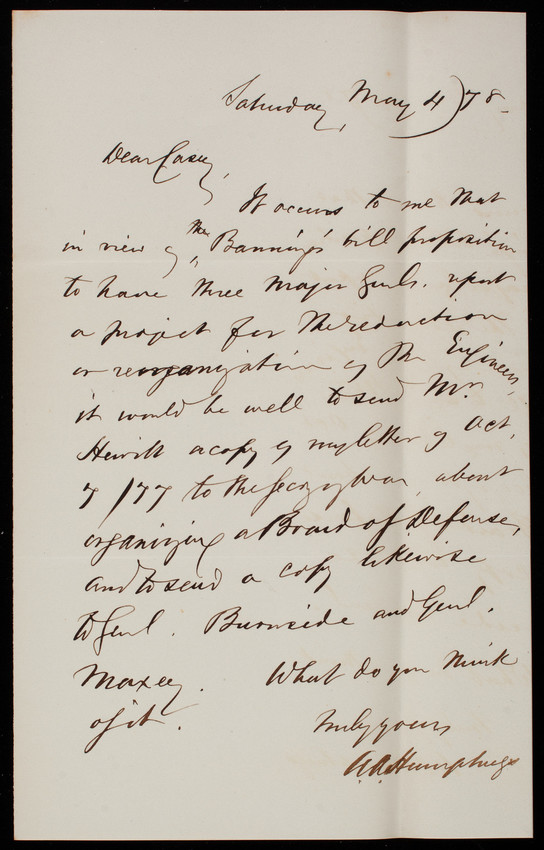 Saturday, May 4) 78-
Dear Casey,
It occurs to me that
in view of the Banning's bill proposition
to have three Major Genls. report
a project for the reduction
or reorganization of the Engineers,
it would be well to send Mr.
Hewitt a copy of my letter of Oct.
7/77 to the Secy of War about
organizing a Board of Defense,
and to send a copy likewise
to Genl. Burnside and Genl.
Maxey. What do you think
of it.
Truly yours
A.A. Humphreys